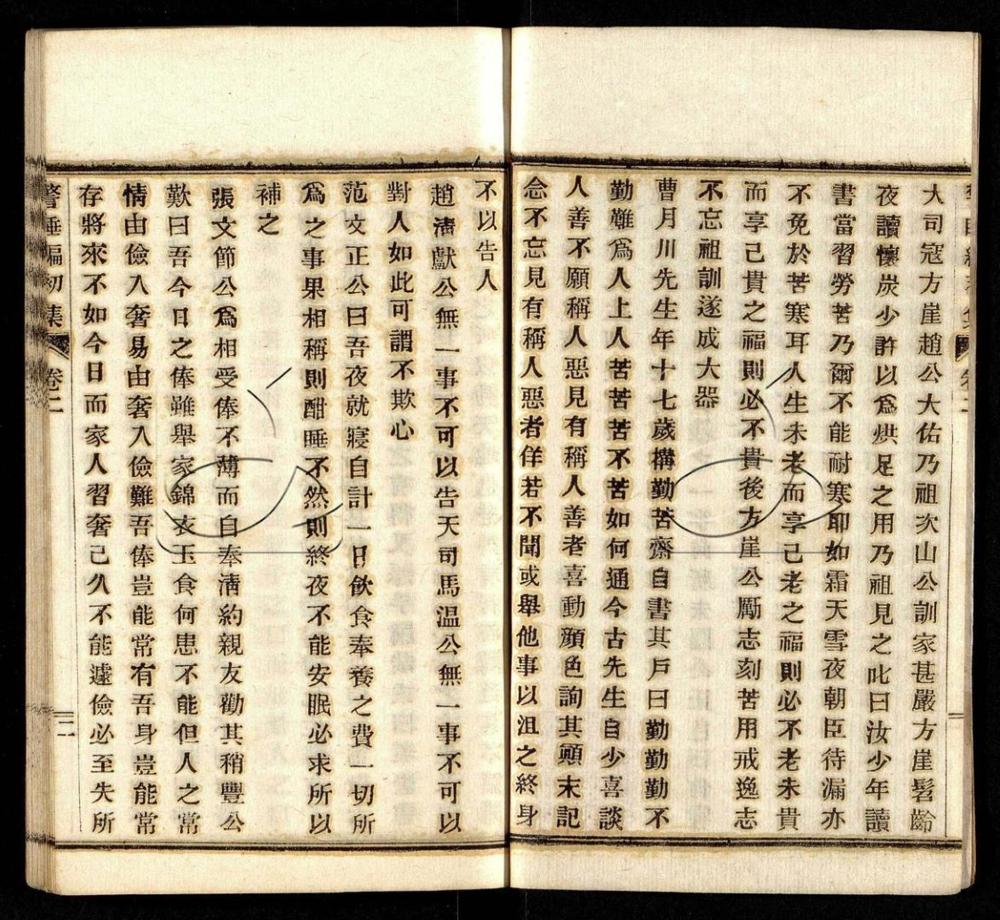 大司寇方崖趙公大佑乃祖次山公訓家甚嚴方崖髫齡
夜讀懷炭少許以爲烘足之用乃祖見之叱曰汝少年讀
書當習勞苦乃爾不能耐寒耶如霜天雪夜朝臣待漏亦
不免於苦寒耳人生未老而享已老之福則必不老未貴
而享已貴之福則必不貴後方崖公勵志刻苦用戒逸志
不忘祖訓遂成大器
曹月川先生年十七歲搆勤苦齋自書其戶曰勤勤勤不
勤難爲人上人苦苦苦不苦如何通今古先生自少喜談
人善不願稱人惡見有稱人善者喜動顏色詢其顚末記
念不忘見有稱人惡者佯若不聞或舉他事以沮之終身
不以告人
趙淸獻公無一事不可以告天司馬溫公無一事不可以
對人如此可謂不欺心
范文正公曰吾夜就寢自計一日飮食奉養之費一切所
爲之事果相稱則酣睡不然則終夜不能安眠必求所以
補之
張文節公爲相受俸不薄而自奉淸約親友勸其稍豐公
歎曰吾今日之俸雖舉家錦衣玉食何患不能但人之常
情由儉入奢易由奢入儉難吾俸豈能常有吾身豈能常
存將來不如今日而家人習奢已久不能遽儉必至失所
警睡編初集 卷二 二